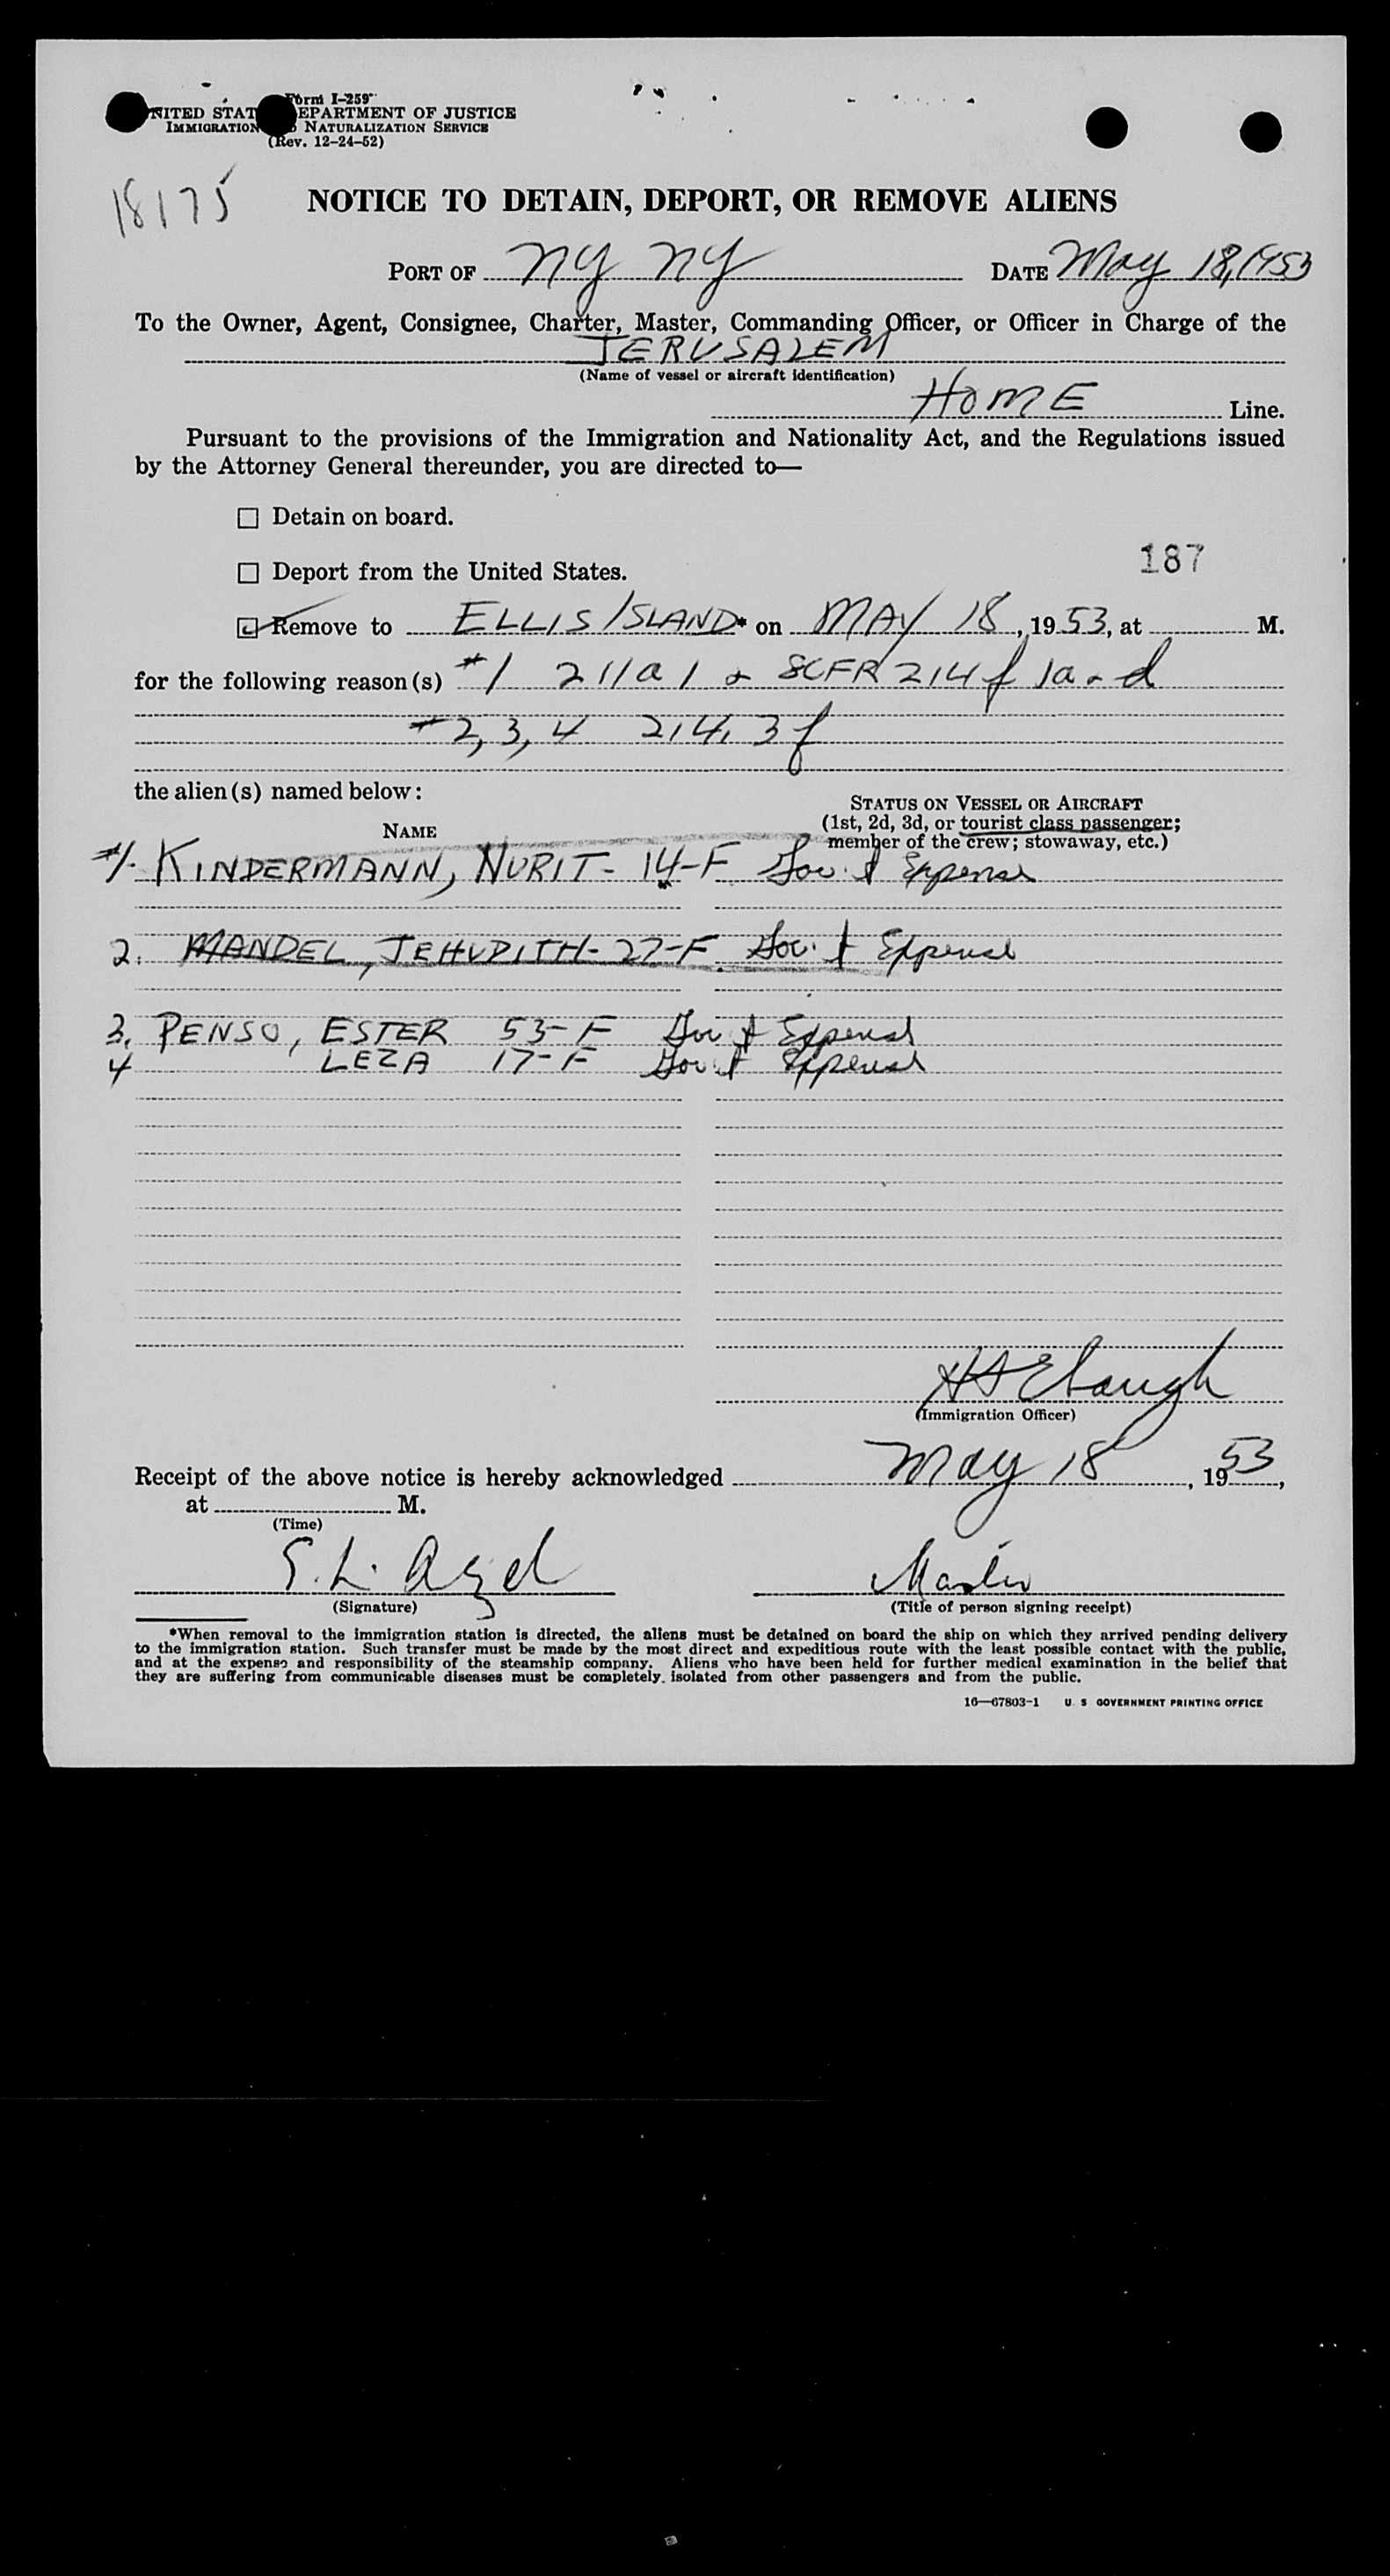 Form I-259
UNITED STAT EPARTMENT OF JUSTICE
IMMIGRATION NATURALIZATION SERVICE
(Rev. 12-24-52)
18175
NOTICE TO DETAIN, DEPORT, OR REMOVE ALIENS
PORT OF NY NY DATE May 18, 1953
To the Owner, Agent, Consignee, Charter, Master, Commanding Officer, or Officer in Charge of the
JERUSALEM
(Name of vessel or aircraft identification)
HOME Line.
Pursuant to the provisions of the Immigration and Nationality Act, and the Regulations issued
by the Attorney General thereunder, you are directed to—
☐ Detain on board.
187
☐ Deport from the United States.
☑ Remove to ELLIS ISLAND* on MAY 18, 1953, at M.
for the following reason(s) #1 211a1 & 8CFR 214f 1a - d
#2, 3, 4 214.3f
the alien(s) named below:
NAME
STATUS ON VESSEL OR AIRCRAFT
(1st, 2d, 3d, or tourist class passenger;
member of the crew; stowaway, etc.)
#1. KINDERMANN, NURIT - 14-F Gov't Expense
2. MANDEL, JEHUDITH - 27-F. Gov't Expense
3. PENSO, ESTER 53-F Gov't Expense
4 LEZA 17-F Gov't Expense
(Immigration Officer)
Receipt of the above notice is hereby acknowledged May 18, 1953,
at M.
(Time)
S. L. Master
(Signature) (Title of person signing receipt)
*When removal to the immigration station is directed, the aliens must be detained on board the ship on which they arrived pending delivery
to the immigration station. Such transfer must be made by the most direct and expeditious route with the least possible contact with the public,
and at the expense and responsibility of the steamship company. Aliens who have been held for further medical examination in the belief that
they are suffering from communicable diseases must be completely isolated from other passengers and from the public.
16—67803-1 U. S GOVERNMENT PRINTING OFFICE